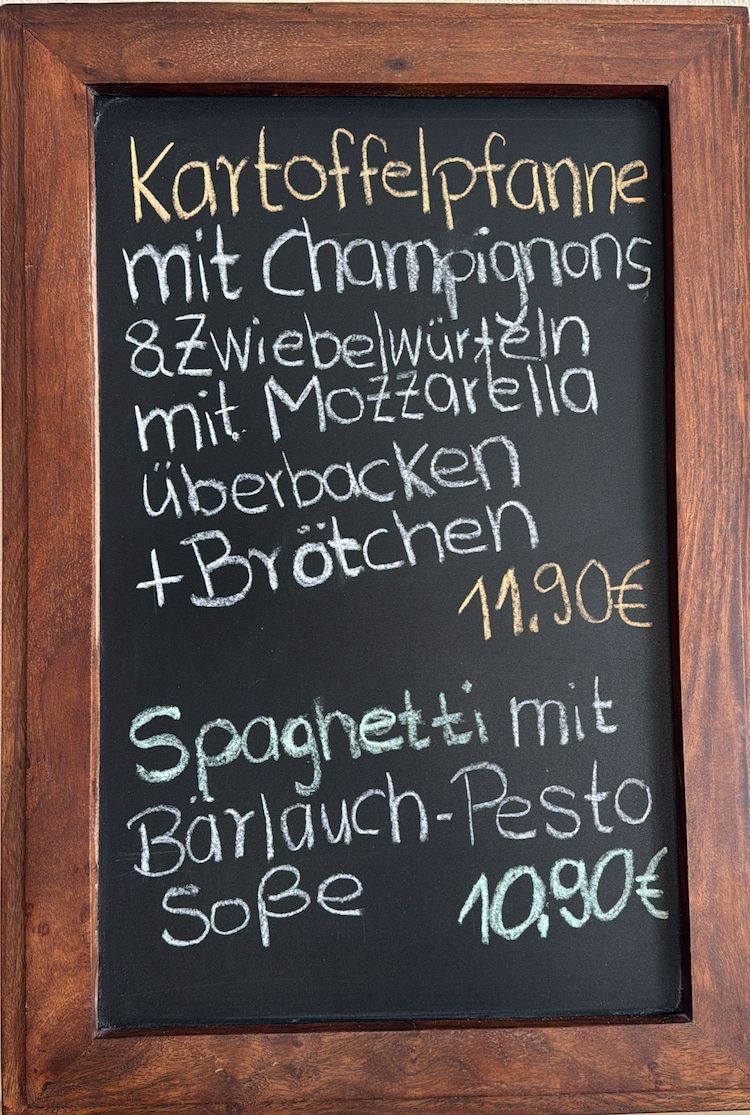 Kartoffelpfanne
mit Champignons
&Zwiebelwürfeln
mit Mozzarella
überbacken
+Brötchen
11.90€
Spaghetti mit
Bärlauch-Pesto
Soße 10,90€